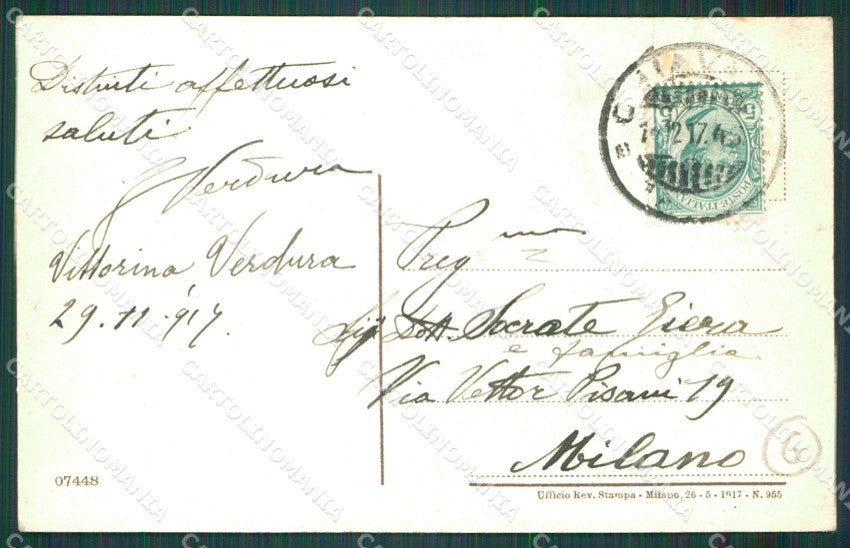 Distinti affettuosi
saluti
Verdura
Vittorina Verdura
29.11.917.
Preg mo
Sig Dott. Socrate
e famiglia
Via Vettor Pisani 19
Milano
07448
Ufficio Rev. Stampa - Milano, 26 - 5 - 1917 - N. 955
POSTE ITALIANE
5
5
CARTOLINOMANIA